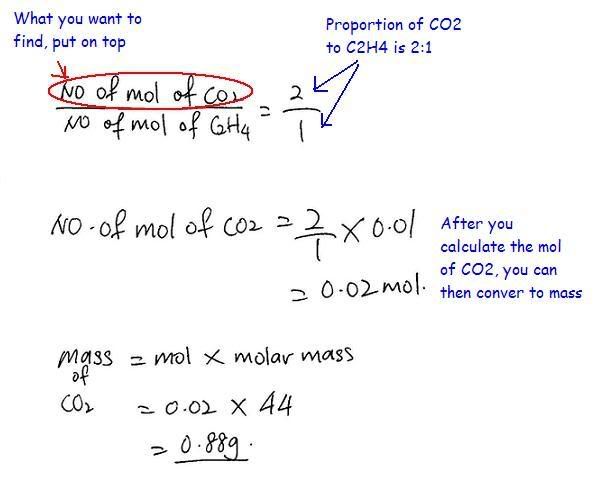 What you want to
find, put on top
Proportion of CO2
to C2H4 is 2:1
NO of mol of CO2
NO of mol of C2H4
= 2
1
NO. of mol of CO2 = 2
1
× 0.01
= 0.02 mol.
After you
calculate the mol
of CO2, you can
then conver to mass
mass = mol × molar mass
of
CO2 = 0.02 × 44
= 0.88g.